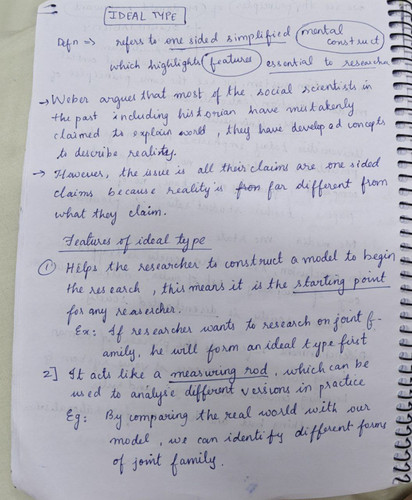 IDEAL TYPE
Defn => refers to one sided simplified mental construct
which highlights features essential to researcher
→ Weber argues that most of the social scientists in
the past including historian have mistakenly
claimed to explain world, they have developed concepts
to describe reality.
→ However, the issue is all their claims are one sided
claims because reality is from far different from
what they claim.
Features of ideal type
① Helps the researcher to construct a model to begin
the research, this means it is the starting point
for any researcher.
Ex: If researcher wants to research on joint f-
amily, he will form an ideal type first
2] It acts like a measuring rod, which can be
used to analyse different versions in practice
Eg: By comparing the real world with our
model, we can identify different forms
of joint family.